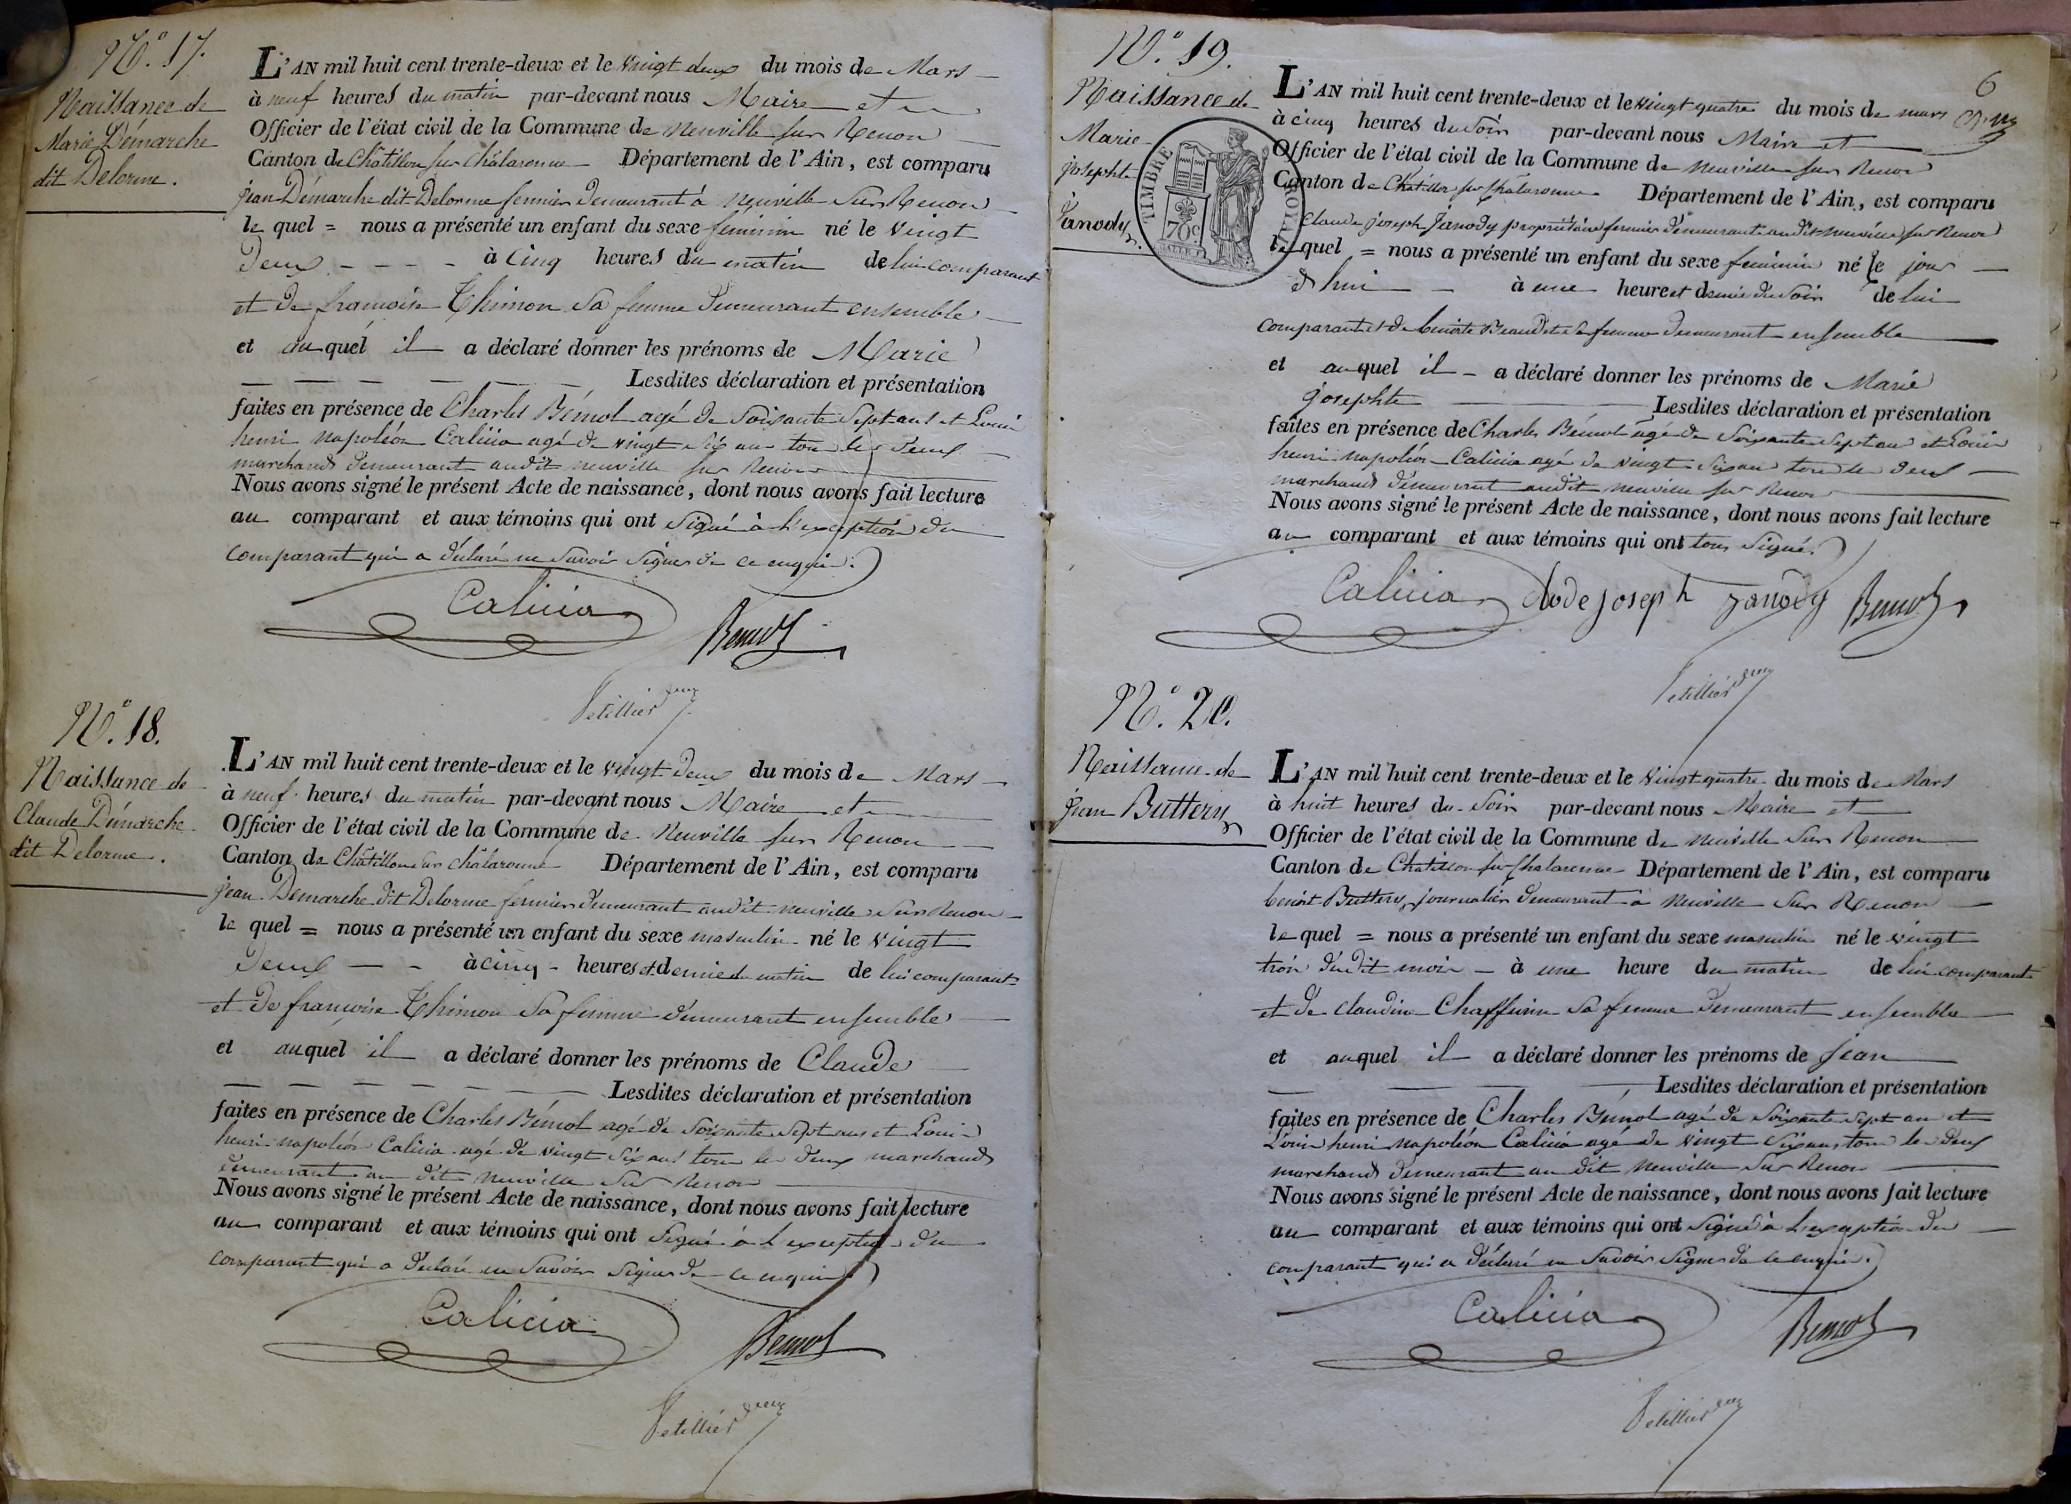 N.° 17.
Naissance de
Marie Démarche
dit Delorme.
L'AN mil huit cent trente-deux et le vingt deux du mois de Mars
à neuf heures du matin par-devant nous Maire et
Officier de l'état civil de la Commune de Neuville sur Renon
Canton de Châtillon sur Châlaronne Département de l'Ain, est comparu
jean Démarche dit Delorme fermier demeurant à Neuville sur Renon
le quel = nous a présenté un enfant du sexe feminin né le vingt
deux - - - - à cinq heures du matin de lui comparant
et de françoise Thimon sa femme demeurant ensemble
et auquel il a déclaré donner les prénoms de Marie
Lesdites déclaration et présentation
faites en présence de Charles Bémol agé de soixante sept ans et Louis
henri napoléon Calicia agé de vingt six ans tous les deux
marchands demeurant audit neuville sur Renon
Nous avons signé le présent Acte de naissance, dont nous avons fait lecture
au comparant et aux témoins qui ont signé à l'exception du
comparant qui a déclaré ne savoir signer de ce enquis.
Calicia
Bemol
Petillier
N.° 18.
Naissance de
Claude Démarche
dit Delorme.
L'AN mil huit cent trente-deux et le vingt deux du mois de Mars
à neuf heures du matin par-devant nous Maire et
Officier de l'état civil de la Commune de Neuville sur Renon
Canton de Châtillon sur châlaronne Département de l'Ain, est comparu
jean Démarche dit Delorme fermier demeurant audit neuville sur Renon
le quel = nous a présenté un enfant du sexe masculin né le vingt
deux - - à cinq heures et demie du matin de lui comparant
et de françoise Thimon sa femme demeurant ensemble
et auquel il a déclaré donner les prénoms de Claude
Lesdites déclaration et présentation
faites en présence de Charles Bémol agé de soixante sept ans et Louis
henri napoléon Calicia agé de vingt six ans tous les deux marchands
demeurant au dit neuville sur Renon
Nous avons signé le présent Acte de naissance, dont nous avons fait lecture
au comparant et aux témoins qui ont signé à l'exception du
comparant qui a déclaré ne savoir signer de ce enquis
Calicia
Bemol
Petillier
6
N.° 19.
Naissance de
Marie
josephte
Janody
TIMBRE ROYAL
70c
L'AN mil huit cent trente-deux et le vingt quatre du mois de mars
à cinq heures du soir par-devant nous Maire et
Officier de l'état civil de la Commune de Neuville sur Renon
Canton de Châtillon sur Châlaronne Département de l'Ain, est comparu
Claude joseph Janody propriétaire fermier demeurant audit neuville sur Renon
le quel = nous a présenté un enfant du sexe feminin né le jour
d'hui à une heure et demie du soir de lui
comparant et de benoite sa femme demeurant ensemble
et auquel il a déclaré donner les prénoms de Marie
josephte Lesdites déclaration et présentation
faites en présence de Charles Bémol agé de soixante sept ans et Louis
henri napoléon Calicia agé de vingt six ans tous les deux
marchands demeurant audit neuville sur Renon
Nous avons signé le présent Acte de naissance, dont nous avons fait lecture
au comparant et aux témoins qui ont tous signé.
Calicia clode joseph janody Bemol
Petillier
N.° 20.
Naissance de
jean Buttery
L'AN mil huit cent trente-deux et le vingt quatre du mois de Mars
à huit heures du soir par-devant nous Maire et
Officier de l'état civil de la Commune de neuville sur Renon
Canton de Chatillon sur Chalaronne Département de l'Ain, est comparu
benoit Buttery journalier demeurant à Neuville sur Renon
le quel = nous a présenté un enfant du sexe masculin né le vingt
trois dudit mois à une heure du matin de lui comparant
et de claudine sa femme demeurant ensemble
et auquel il a déclaré donner les prénoms de jean
Lesdites déclaration et présentation
faites en présence de Charles Bémol agé de soixante sept ans et
Louis henri napoléon Calicia agé de vingt six ans tous les deux
marchands demeurant au dit Neuville sur Renon
Nous avons signé le présent Acte de naissance, dont nous avons fait lecture
au comparant et aux témoins qui ont signé à l'exception du
comparant qui a déclaré ne savoir signer de ce enquis.
Calicia
Bemol
Petillier